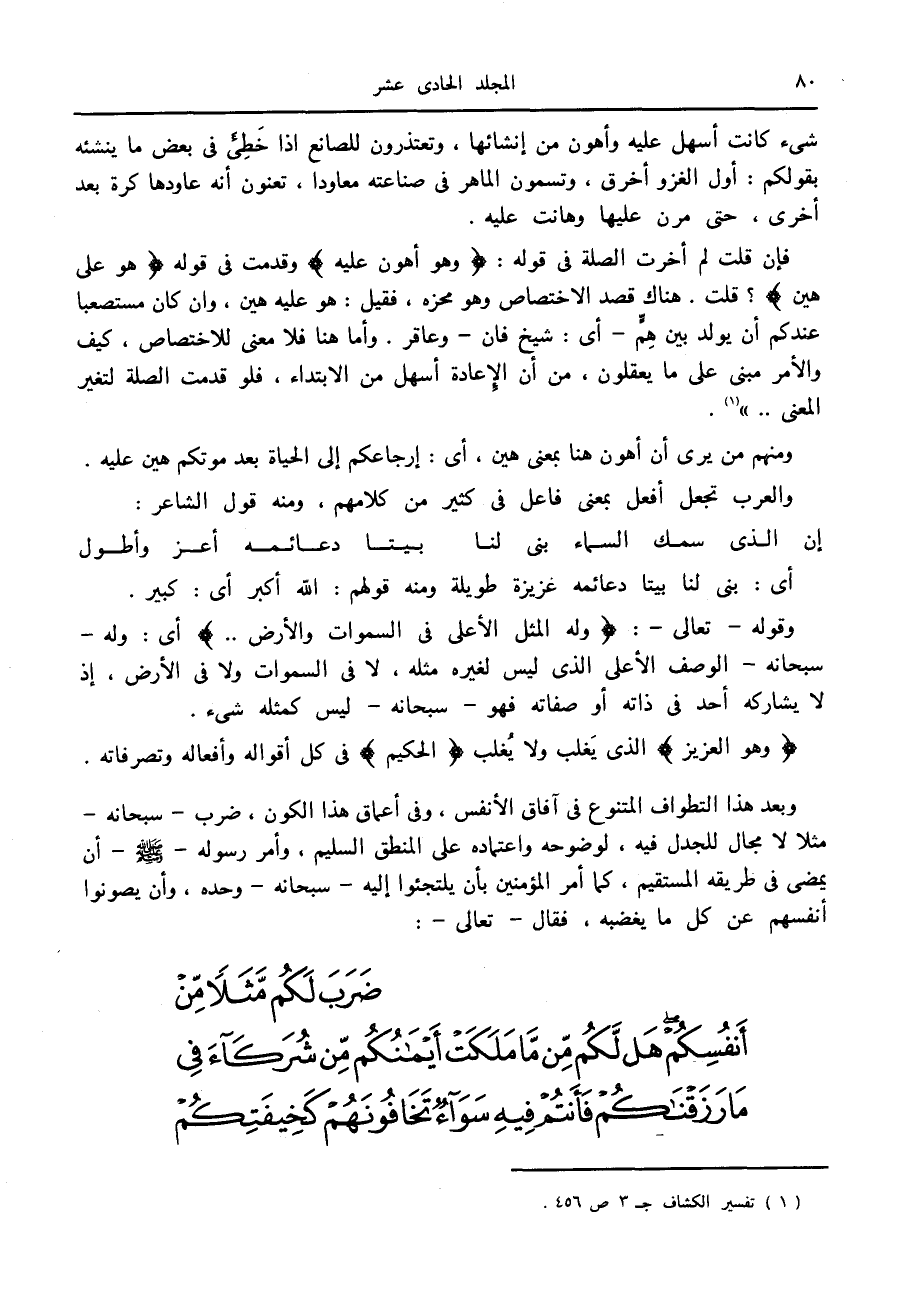 ٨٠ المجلد الحادى عشر
شىء كانت أسهل عليه وأهون من إنشائها ، وتعتذرون للصانع اذا خَطِئَ فى بعض ما ينشئه
بقولكم : أول الغزو أخرق ، وتسمون الماهر فى صناعته معاودا ، تعنون أنه عاودها كرة بعد
أخرى ، حتى مرن عليها وهانت عليه .
فإن قلت لم أخرت الصلة فى قوله : ﴿ وهو أهون عليه ﴾ وقدمت فى قوله ﴿ هو على
هين ﴾ ؟ قلت . هناك قصد الاختصاص وهو محزه ، فقيل : هو عليه هين ، وان كان مستصعبا
عندكم أن يولد بين هِمٍّ – أى : شيخ فان – وعاقر . وأما هنا فلا معنى للاختصاص ، كيف
والأمر مبنى على ما يعقلون ، من أن الإعادة أسهل من الابتداء ، فلو قدمت الصلة لتغير
المعنى .. »(١) .
ومنهم من يرى أن أهون هنا بمعنى هين ، أى : إرجاعكم إلى الحياة بعد موتكم هين عليه .
والعرب تجعل أفعل بمعنى فاعل فى كثير من كلامهم ، ومنه قول الشاعر :
إن الذى سمك السماء بنى لنا بيتا دعائمه أعز وأطول
أى : بنى لنا بيتا دعائمه عزيزة طويلة ومنه قولهم : الله أكبر أى : كبير .
وقوله – تعالى – : ﴿ وله المثل الأعلى فى السموات والأرض .. ﴾ أى : وله –
سبحانه – الوصف الأعلى الذى ليس لغيره مثله ، لا فى السموات ولا فى الأرض ، إذ
لا يشاركه أحد فى ذاته أو صفاته فهو – سبحانه – ليس كمثله شىء .
﴿ وهو العزيز ﴾ الذى يَغلب ولا يُغلب ﴿ الحكيم ﴾ فى كل أقواله وأفعاله وتصرفاته .
وبعد هذا التطواف المتنوع فى آفاق الأنفس ، وفى أعماق هذا الكون ، ضرب – سبحانه –
مثلا لا مجال للجدل فيه ، لوضوحه واعتماده على المنطق السليم ، وأمر رسوله – ﷺ – أن
يمضى فى طريقه المستقيم ، كما أمر المؤمنين بأن يلتجئوا إليه – سبحانه – وحده ، وأن يصونوا
أنفسهم عن كل ما يغضبه ، فقال – تعالى – :
ضَرَبَ لَكُم مَّثَلًا مِّنْ
أَنفُسِكُمْ ۖ هَل لَّكُم مِّن مَّا مَلَكَتْ أَيْمَٰنُكُم مِّن شُرَكَآءَ فِى
مَا رَزَقْنَٰكُمْ فَأَنتُمْ فِيهِ سَوَآءٌ تَخَافُونَهُمْ كَخِيفَتِكُمْ
( ١ ) تفسير الكشاف جـ ٣ ص ٤٥٦ .